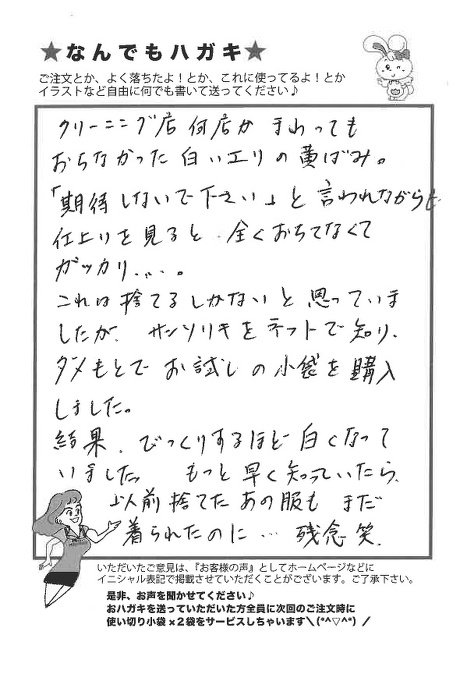 ★なんでもハガキ★
ご注文とか、よく落ちたよ！とか、これに使ってるよ！とか
イラストなど自由に何でも書いて送ってください♪
クリーニング店 何店か まわっても
おちなかった 白いエリの黄ばみ。
「期待しないで下さい」と 言われながらも
仕上りを見ると、全くおちてなくて
ガッカリ...。
これは捨てるしかないと思っていま
したが、サンソリキをネットで知り、
ダメもとで お試しの小袋を購入
しました。
結果、びっくりするほど白くなって
いました。 もっと早く知っていたら、
以前捨てたあの服も まだ
着られたのに… 残念 笑.
いただいたご意見は、『お客様の声』としてホームページなどに
イニシャル表記で掲載させていただくことがございます。ご了承下さい。
是非、お声を聞かせてください♪
おハガキを送っていただいた方全員に次回のご注文時に
使い切り小袋×2袋をサービスしちゃいます＼(*^▽^*)／